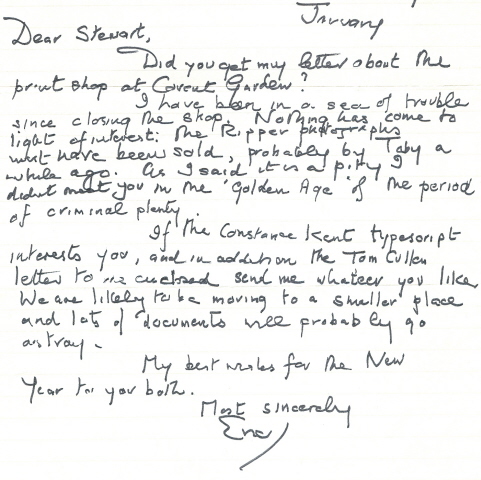 January
Dear Stewart,
Did you get my letter about the
print shop at Covent Garden?
I have been in a sea of trouble
since closing the shop. Nothing has come to
light of interest: the Ripper photographs
must have been sold, probably by Toby a
while ago. As I said it is a pity I
didnt meet you in the 'Golden Age' of the period
of criminal plenty.
If the Constance Kent typescript
interests you, and in addition the Tom Cullen
letter to me enclosed send me whatever you like
We are likely to be moving to a smaller place
and lots of documents will probably go
astray.
My best wishes for the New
Year to you both.
Most sincerely
Eric